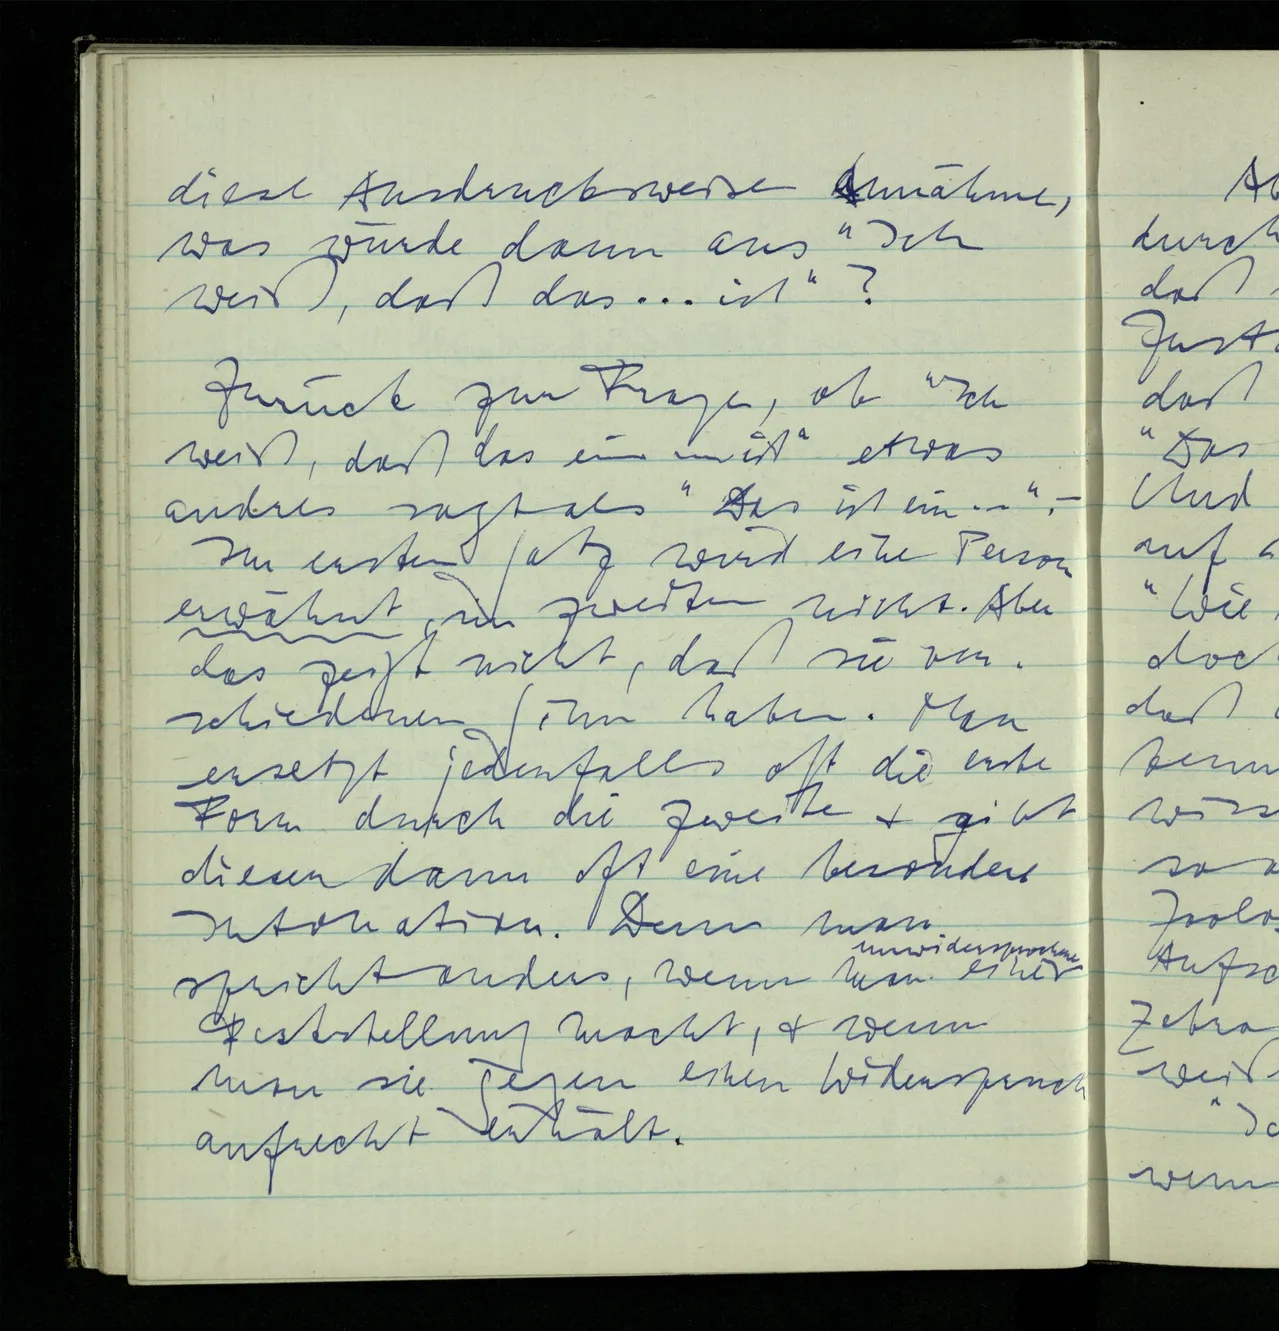 diese Ausdrucksweise annähme,
was würde dann aus "Ich
weiß, daß das ... ist"?
Zurück zur Frage, ob "Ich
weiß, daß das ein ... ist" etwas
andres sagt als "Das ist ein ...". –
Im ersten Satz wird eine Person
erwähnt, im zweiten nicht. Aber
das zeigt nicht, daß sie ver-
schiedenen Sinn haben. Man
ersetzt jedenfalls oft die erste
Form durch die zweite & gibt
dieser dann oft eine besondere
Intonation. Denn man
unwidersprochene
spricht anders, wenn man eine
Feststellung macht, & wenn
man sie gegen einen Widerspruch
aufrecht erhält.
durch
daß
daß
"Das
Und
auf
"Wie
doch
daß
so
Zebra
weiß
wenn